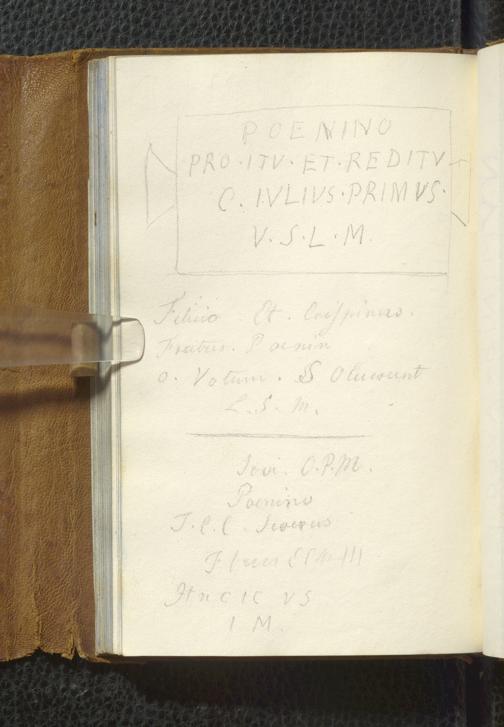 POENINO
PRO·ITV·ET·REDITV
C·IVLIVS·PRIMVS·
V·S·L·M.
Et. Crispinus.
Fratres. Poenin
o. Votum. Soluerunt
L. S. M.
Iovi. O.P.M.
Poenino
T. C. C. Severus
VS